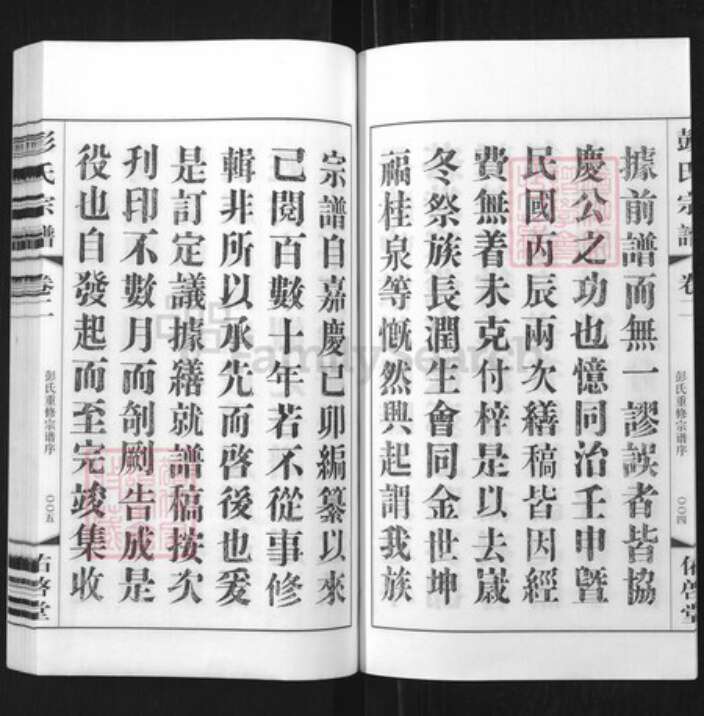 彭氏宗譜
卷二
彭氏重修宗谱序
〇〇四
佑啓堂
據前譜而無一謬誤者皆協
慶公之功也憶同治壬申暨
民國丙辰兩次繕稿皆因經
費無着未克付梓是以去歲
冬祭族長潤生會同金世坤
福桂泉等慨然興起謂我族
宗譜自嘉慶己卯編纂以來
已閱百數十年若不從事修
輯非所以承先而啓後也爰
是訂定議據繕就譜稿按次
刊印不數月而剞劂告成是
役也自發起而至完竣集收
彭氏宗譜
卷二
彭氏重修宗谱序
〇〇五
佑啓堂
FamilySearch